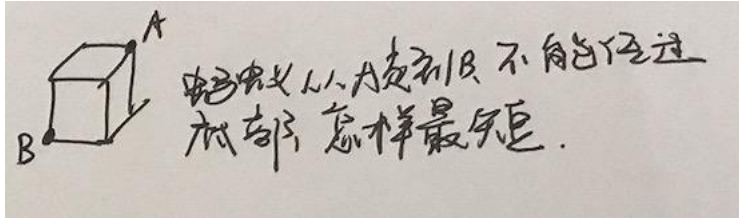 A
B
蚂蚁从A爬到B,不能经过
底部,怎样最短.